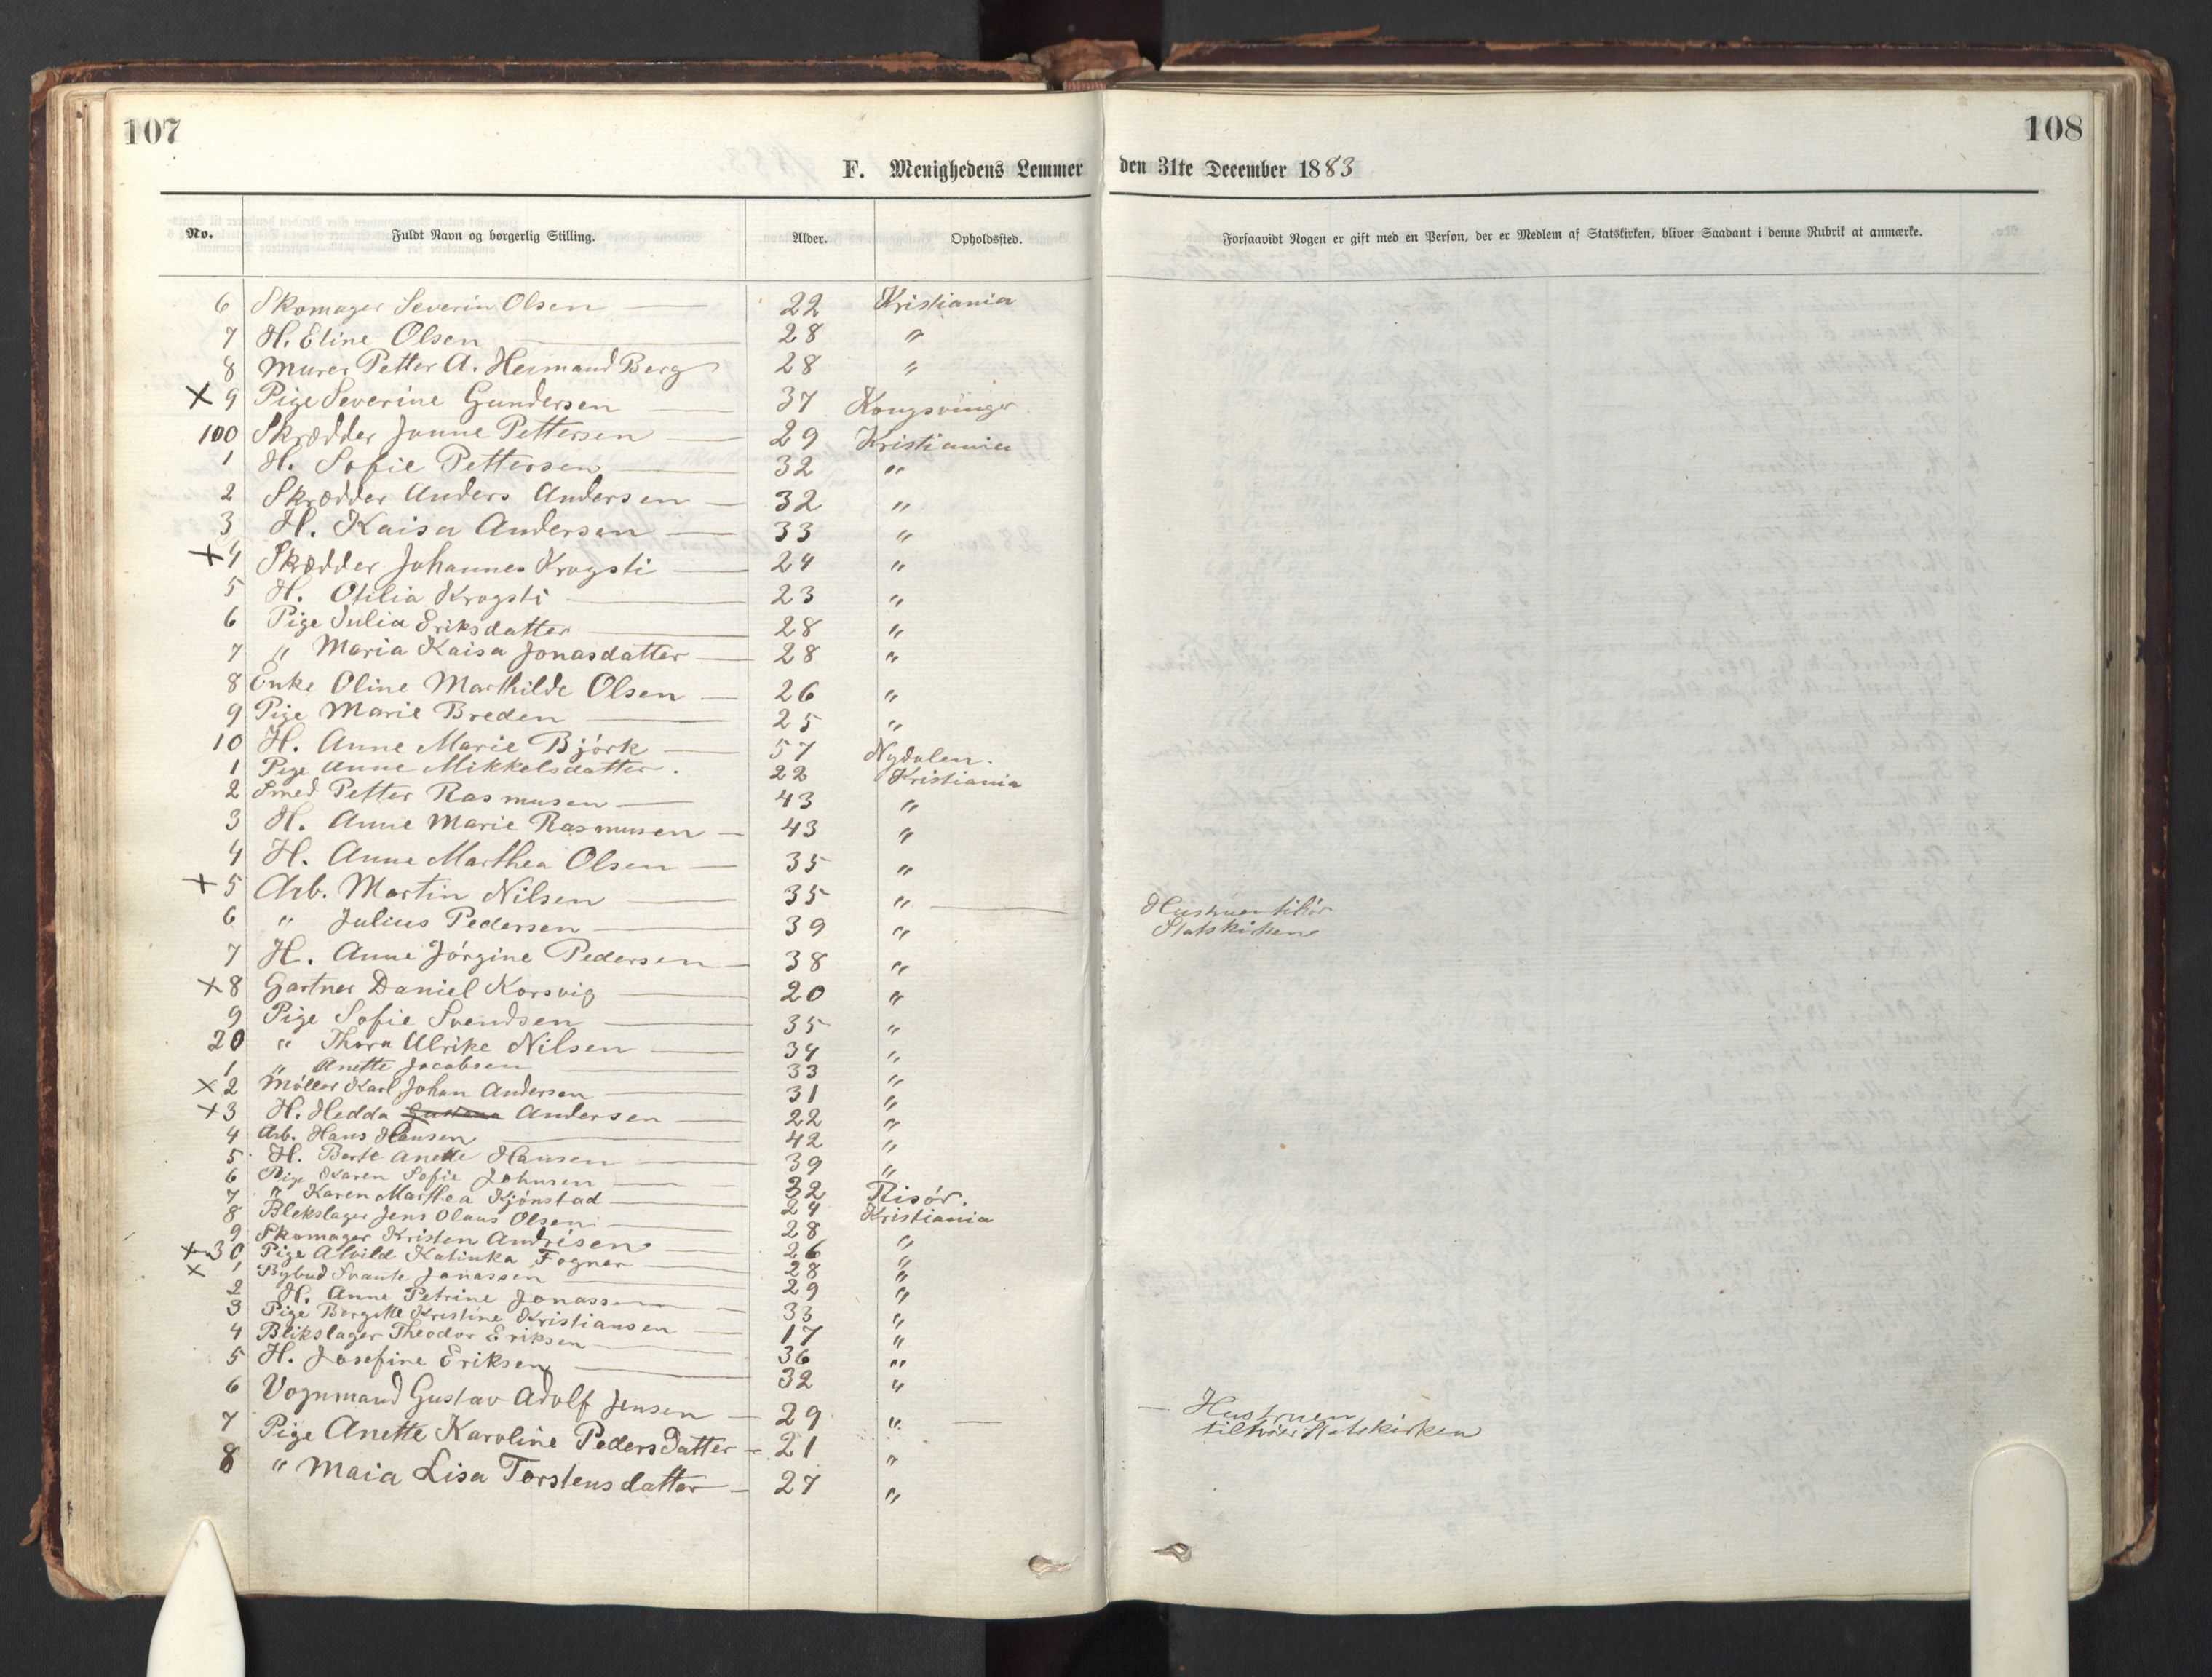 107
108
F. Menighedens Lemmer den 31te December 1883
No. Fuldt Navn og borgerlig Stilling. Alder. Opholdssted. Forsaavidt Nogen er gift med en Person, der er Medlem af Statskirken, bliver Saadant i denne Rubrik at anmærke.
6 Skomager Severin Olsen 22 Kristiania
7 H. Eline Olsen 28 "
8 Murer Petter A. Hermand Berg 28 "
X 9 Pige Severine Gundersen 37 Kongsvinger
100 Skrædder Jonne Pettersen 29 Kristiania
1 H. Sofie Pettersen 32 "
2 Skrædder Anders Andersen 32 "
3 H. Kaisa Andersen 33 "
+ 4 Skrædder Johannes Krogsti 24 "
5 H. Otilia Krogsti 23 "
6 Pige Julia Eriksdatter 28 "
7 " Maria Kaisa Jonasdatter 28 "
8 Enke Oline Marthilde Olsen 26 "
9 Pige Marie Breden 25 "
10 H. Anne Marie Björk 57 Nydalen.
1 Pige Anne Mikkelsdatter. 22 Kristiania
2 Smed Petter Rasmusen 43 "
3 H. Anne Marie Rasmusen 43 "
4 H. Anne Marthea Olsen 35 "
+ 5 Arb. Martin Nilsen 35 " Hustruen tilhör
Statskirken
6 " Julius Pedersen 39 "
7 H. Anne Jörgine Pedersen 38 "
X 8 Gartner Daniel Korsvig 20 "
9 Pige Sofie Svendsen 35 "
20 " Thora Ulrike Nilsen 34 "
1 " Anette Jacobsen 33 "
X 2 Möller Karl Johan Andersen 31 "
+ 3 H. Hedda Andersen 22 "
4 Arb. Hans Hansen 42 "
5 H. Berte Anette Hansen 39 "
6 Pige Karen Sofie Johnsen 32 Risör.
7 " Karen Marthea Kjönstad 24 Kristiania
8 Blekslager Jens Olaus Olsen 28 "
9 Skomager Kristen Andrisen 26 "
+ 30 Pige Alvild Katinka Fogner 28 "
X 1 Bybud Svante Jonassen 29 "
2 H. Anne Petrine Jonassen 33 "
3 Pige Bergitte Kristine Kristiansen 17 "
4 Blikslager Theodor Eriksen 36 "
5 H. Josefine Eriksen 32 "
6 Vognmand Gustav Adolf Jensen 29 " Hustruen
tilhörer Statskirken
7 Pige Anette Karoline Pedersdatter 21 "
8 " Maia Lisa Torstensdatter 27 "